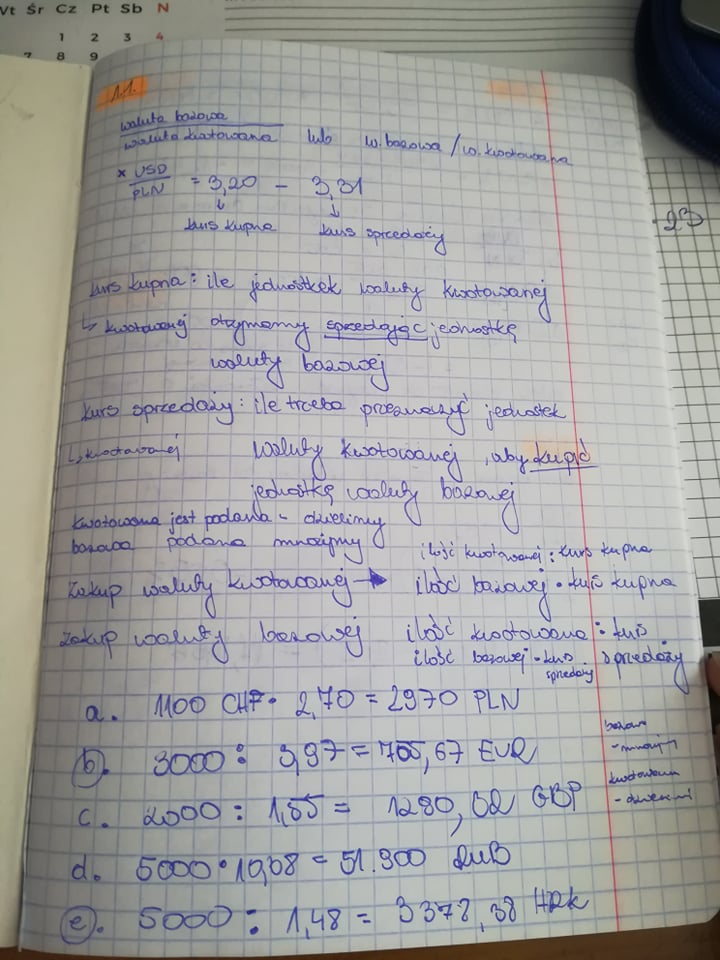 Vt Śr Cz Pt Sb N
1 2 3 4
7 8 9
1.1.
waluta bazowa
waluta kwotowana lub w. bazowa / w. kwotowana
x USD
PLN = 3,20 - 3,31
↓ ↓
kurs kupna kurs sprzedaży
kurs kupna: ile jednostkek waluty kwotowanej
↳ kwotowanej otrzymamy sprzedając jednostkę
waluty bazowej
kurs sprzedaży: ile trzeba przeznaczyć jednostek
↳ kwotowanej waluty kwotowanej, aby kupić
jednostkę waluty bazowej
kwotowana jest podana - dzielimy
bazowa podana mnożymy
ilość kwotowanej : kurs kupna
Zakup waluty kwotowanej → ilość bazowej · kurs kupna
Zakup waluty bazowej ilość kwotowana : kurs
ilość bazowej · kurs sprzedaży
sprzedaży
a. 1100 CHF · 2,70 = 2970 PLN
bazowa
- mnożymy
b. 3000 : 3,97 = 755,67 EUR
kwotowana
- dzielimy
c. 2000 : 1,55 = 1290,32 GBP
d. 5000 · 10,08 = 51.900 RUB
e. 5000 : 1,48 = 3378,38 HRK
23